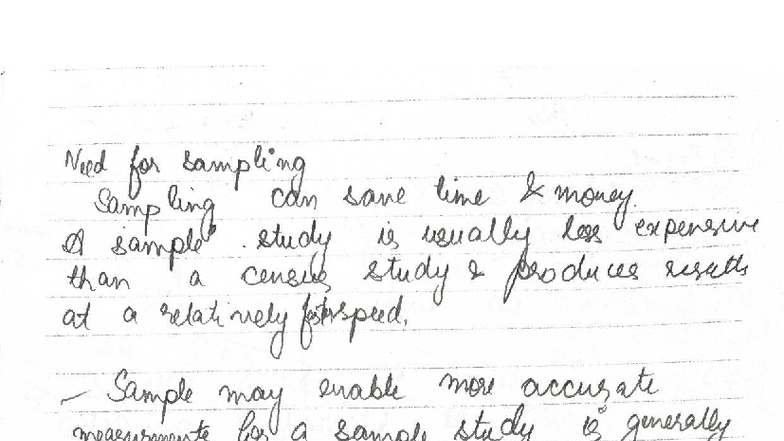 Need for sampling
Sampling can save time & money.
A sample study is usually less expensive
than a census study & produces results
at a relatively faster speed.
– Sample may enable more accurate
measurements for a sample study is generally